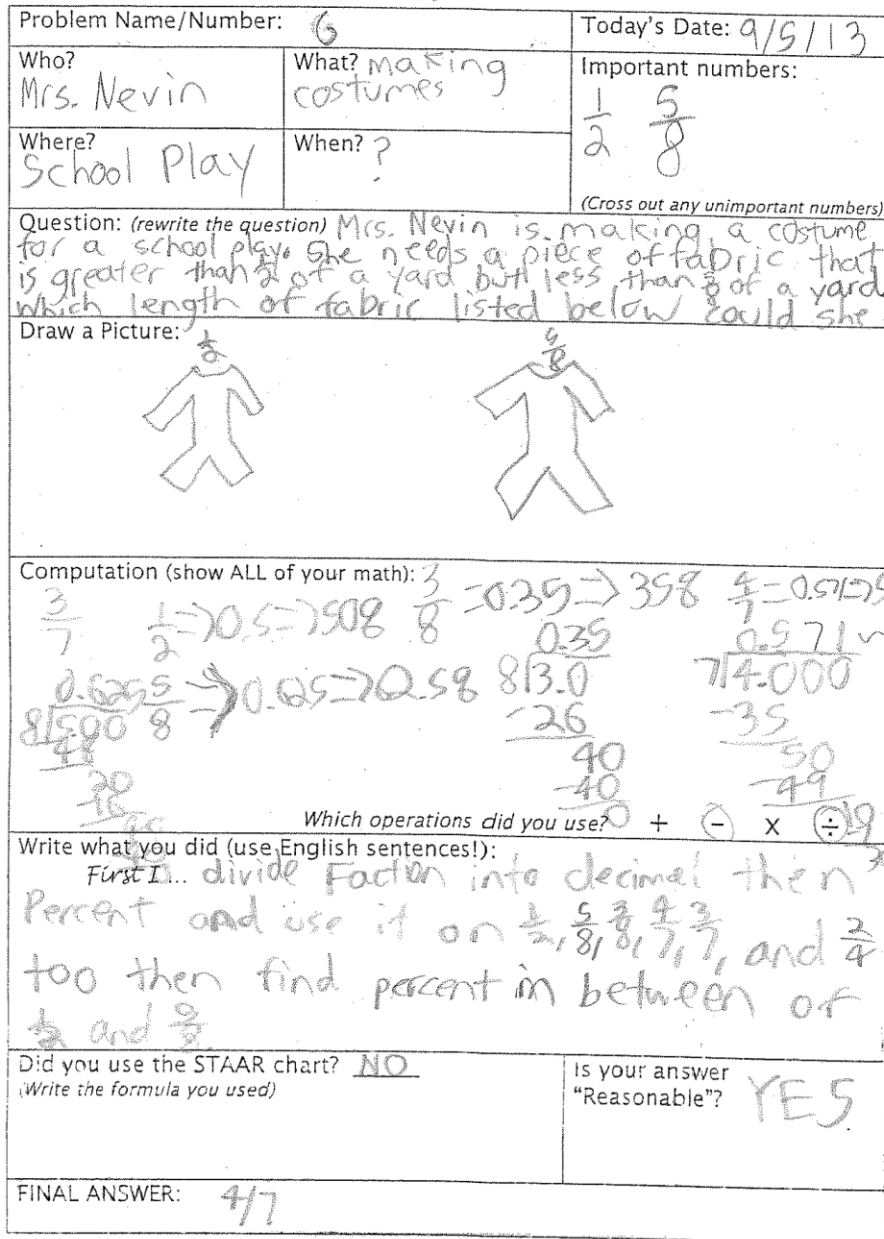 Problem Name/Number: 6
Today's Date: 9/5/13
Who?
Mrs. Nevin
What? making
costumes
Important numbers:
1/2 5/8
(Cross out any unimportant numbers)
Where?
School Play
When? ?
Question: (rewrite the question) Mrs. Nevin is making a costume
for a school play. She needs a piece of fabric that
is greater than 1/2 of a yard but less than 5/8 of a yard
which length of fabric listed below could she
Draw a Picture:
1/2 5/8
Computation (show ALL of your math):
3/7 1/2 => 0.5 => 50% 3/8 = 0.35 => 35% 4/7 = 0.57 =>
0.625 5/8 => 0.625 =>
8)5.00
48
20
16
0.35
8)3.0
-26
40
-40
0
0.571
7)4.000
-35
50
-49
Which operations did you use? + - x ÷
Write what you did (use English sentences!):
First I... divide Faction into decimal then
Percent and use it on 1/2, 5/8, 3/8, 4/7, 3/7, and 2/4
too then find percent in between of
1/2 and
Did you use the STAAR chart? NO
(Write the formula you used)
Is your answer
"Reasonable"? YES
FINAL ANSWER: 4/7